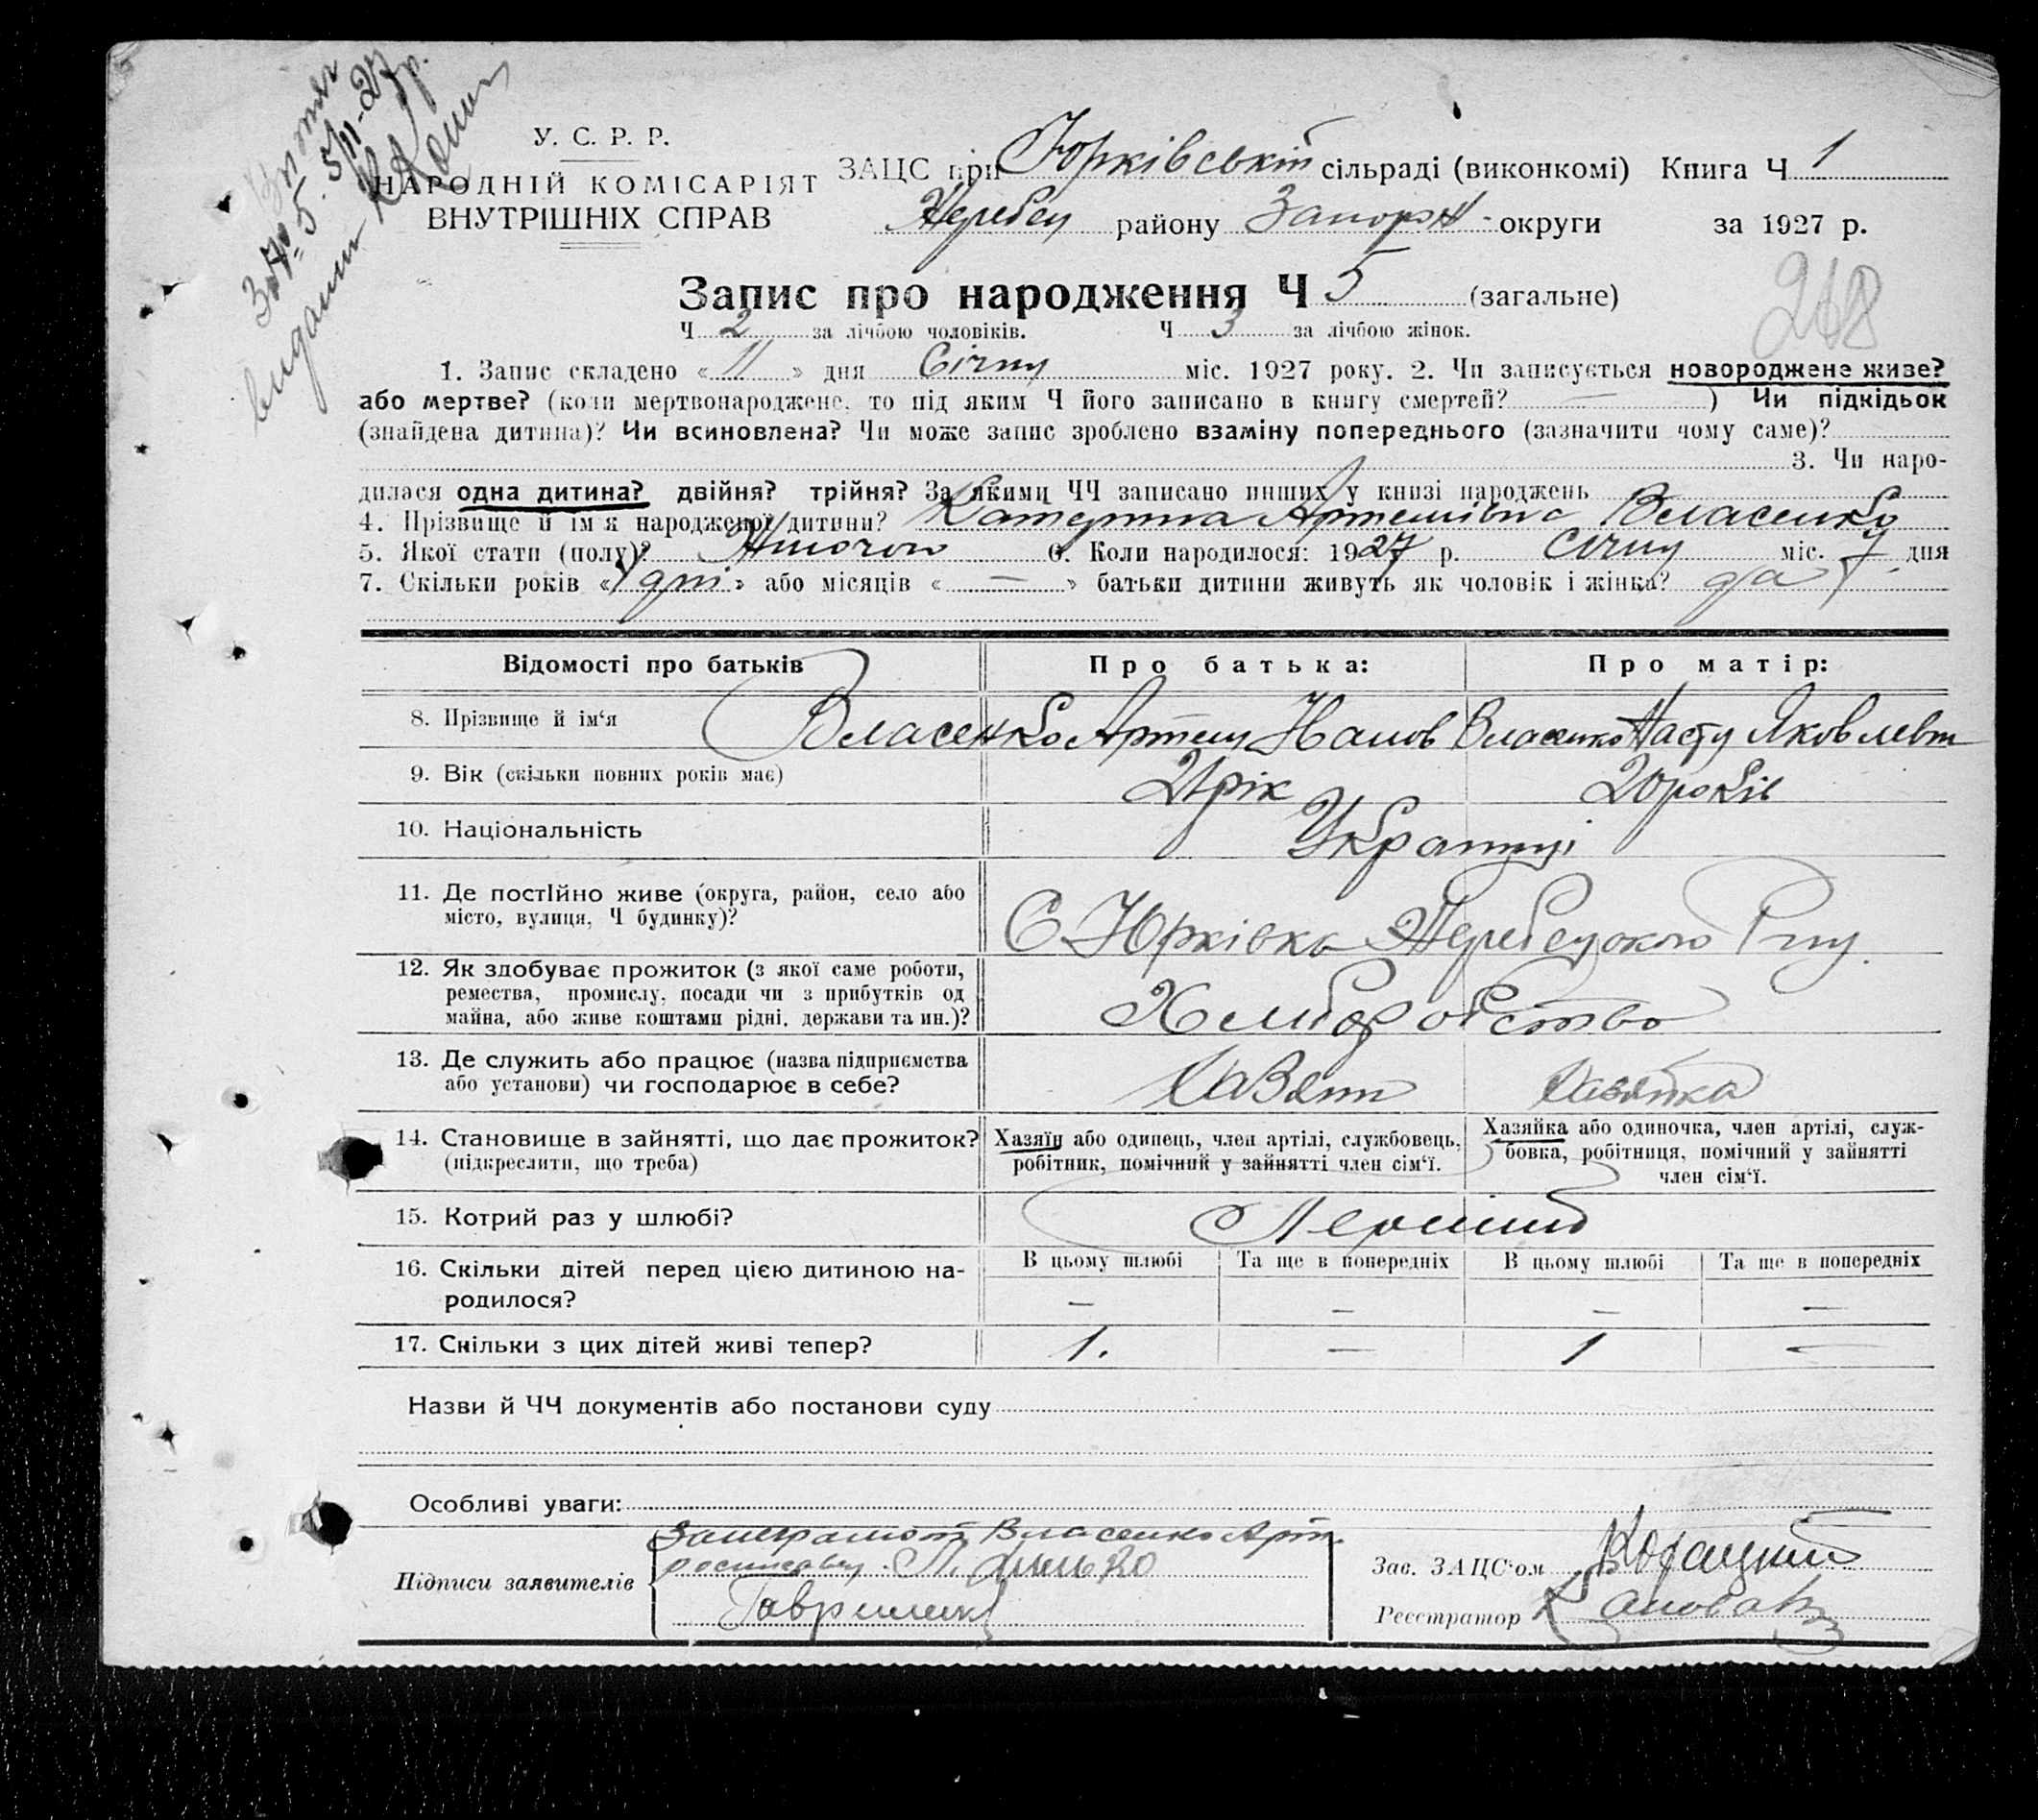 Витяг
за № 5. 5/II-27р.
видании Копии
У. С. Р. Р.
НАРОДНІЙ КОМІСАРІЯТ
ВНУТРІШНІХ СПРАВ
ЗАЦС при Юрківській сільраді (виконкомі) Книга Ч 1
Жеребец району Запорж - округи за 1927 р.
268
Запис про народження Ч 5 (загальне)
Ч 2 за лічбою чоловіків. Ч 3 за лічбою жінок.
1. Запис складено «11» дня Січну міс. 1927 року. 2. Чи записується новороджене живе?
або мертве? (коли мертвонароджене, то під яким Ч його записано в книгу смертей? — ) Чи підкідьок
(знайдена дитина)? Чи всиновлена? Чи може запис зроблено взаміну попереднього (зазначити чому саме)?
3. Чи наро-
дилася одна дитина? двійня? трійня? За якими ЧЧ записано инших у книзі народжень
4. Прізвище й ім'я народженої дитини? Катерина Артемівна Власенко
5. Якої стати (полу)? Жіночои 6. Коли народилося: 1927 р. Січну міс. 7 дня
7. Скільки років « дні » або місяців « — » батьки дитини живуть як чоловік і жінка? да
Відомості про батьків Про батька: Про матір:
8. Прізвище й ім'я Власенко Артем Иванов Власенко Насту Яковлевт
9. Вік (скільки повних років має) 21 рік 20 років
10. Національність Українці
11. Де постІйно живе (округа, район, село або
місто, вулиця, Ч будинку)? С. Юрківка Жеребецького Р-ну.
12. Як здобуває прожиток (з якої саме роботи,
ремества, промислу, посади чи з прибутків од
майна, або живе коштами рідні, держави та ин.)? Хлиборобство
13. Де служить або працює (назва підприємства
або установи) чи господарює в себе? Хазяін Хазяйка
14. Становище в зайнятті, що дає прожиток?
(підкреслити, що треба)
Хазяїн або одинець, член артілі, службовець,
робітник, помічний у зайнятті член сім'ї.
Хазяйка або одиночка, член артілі, служ-
бовка, робітниця, помічний у зайнятті
член сім'ї.
15. Котрий раз у шлюбі? Перший
16. Скільки дітей перед цією дитиною на-
родилося?
В цьому шлюбі Та ще в попередніх В цьому шлюбі Та ще в попередніх
— — — —
17. Скільки з цих дітей живі тепер? 1. — 1 —
Назви й ЧЧ документів або постанови суду
Особливі уваги:
Підписи заявителів
За неграмот Власенко Арт.
росписався
Гавриленко
Зав. ЗАЦС'ом
Реєстратор